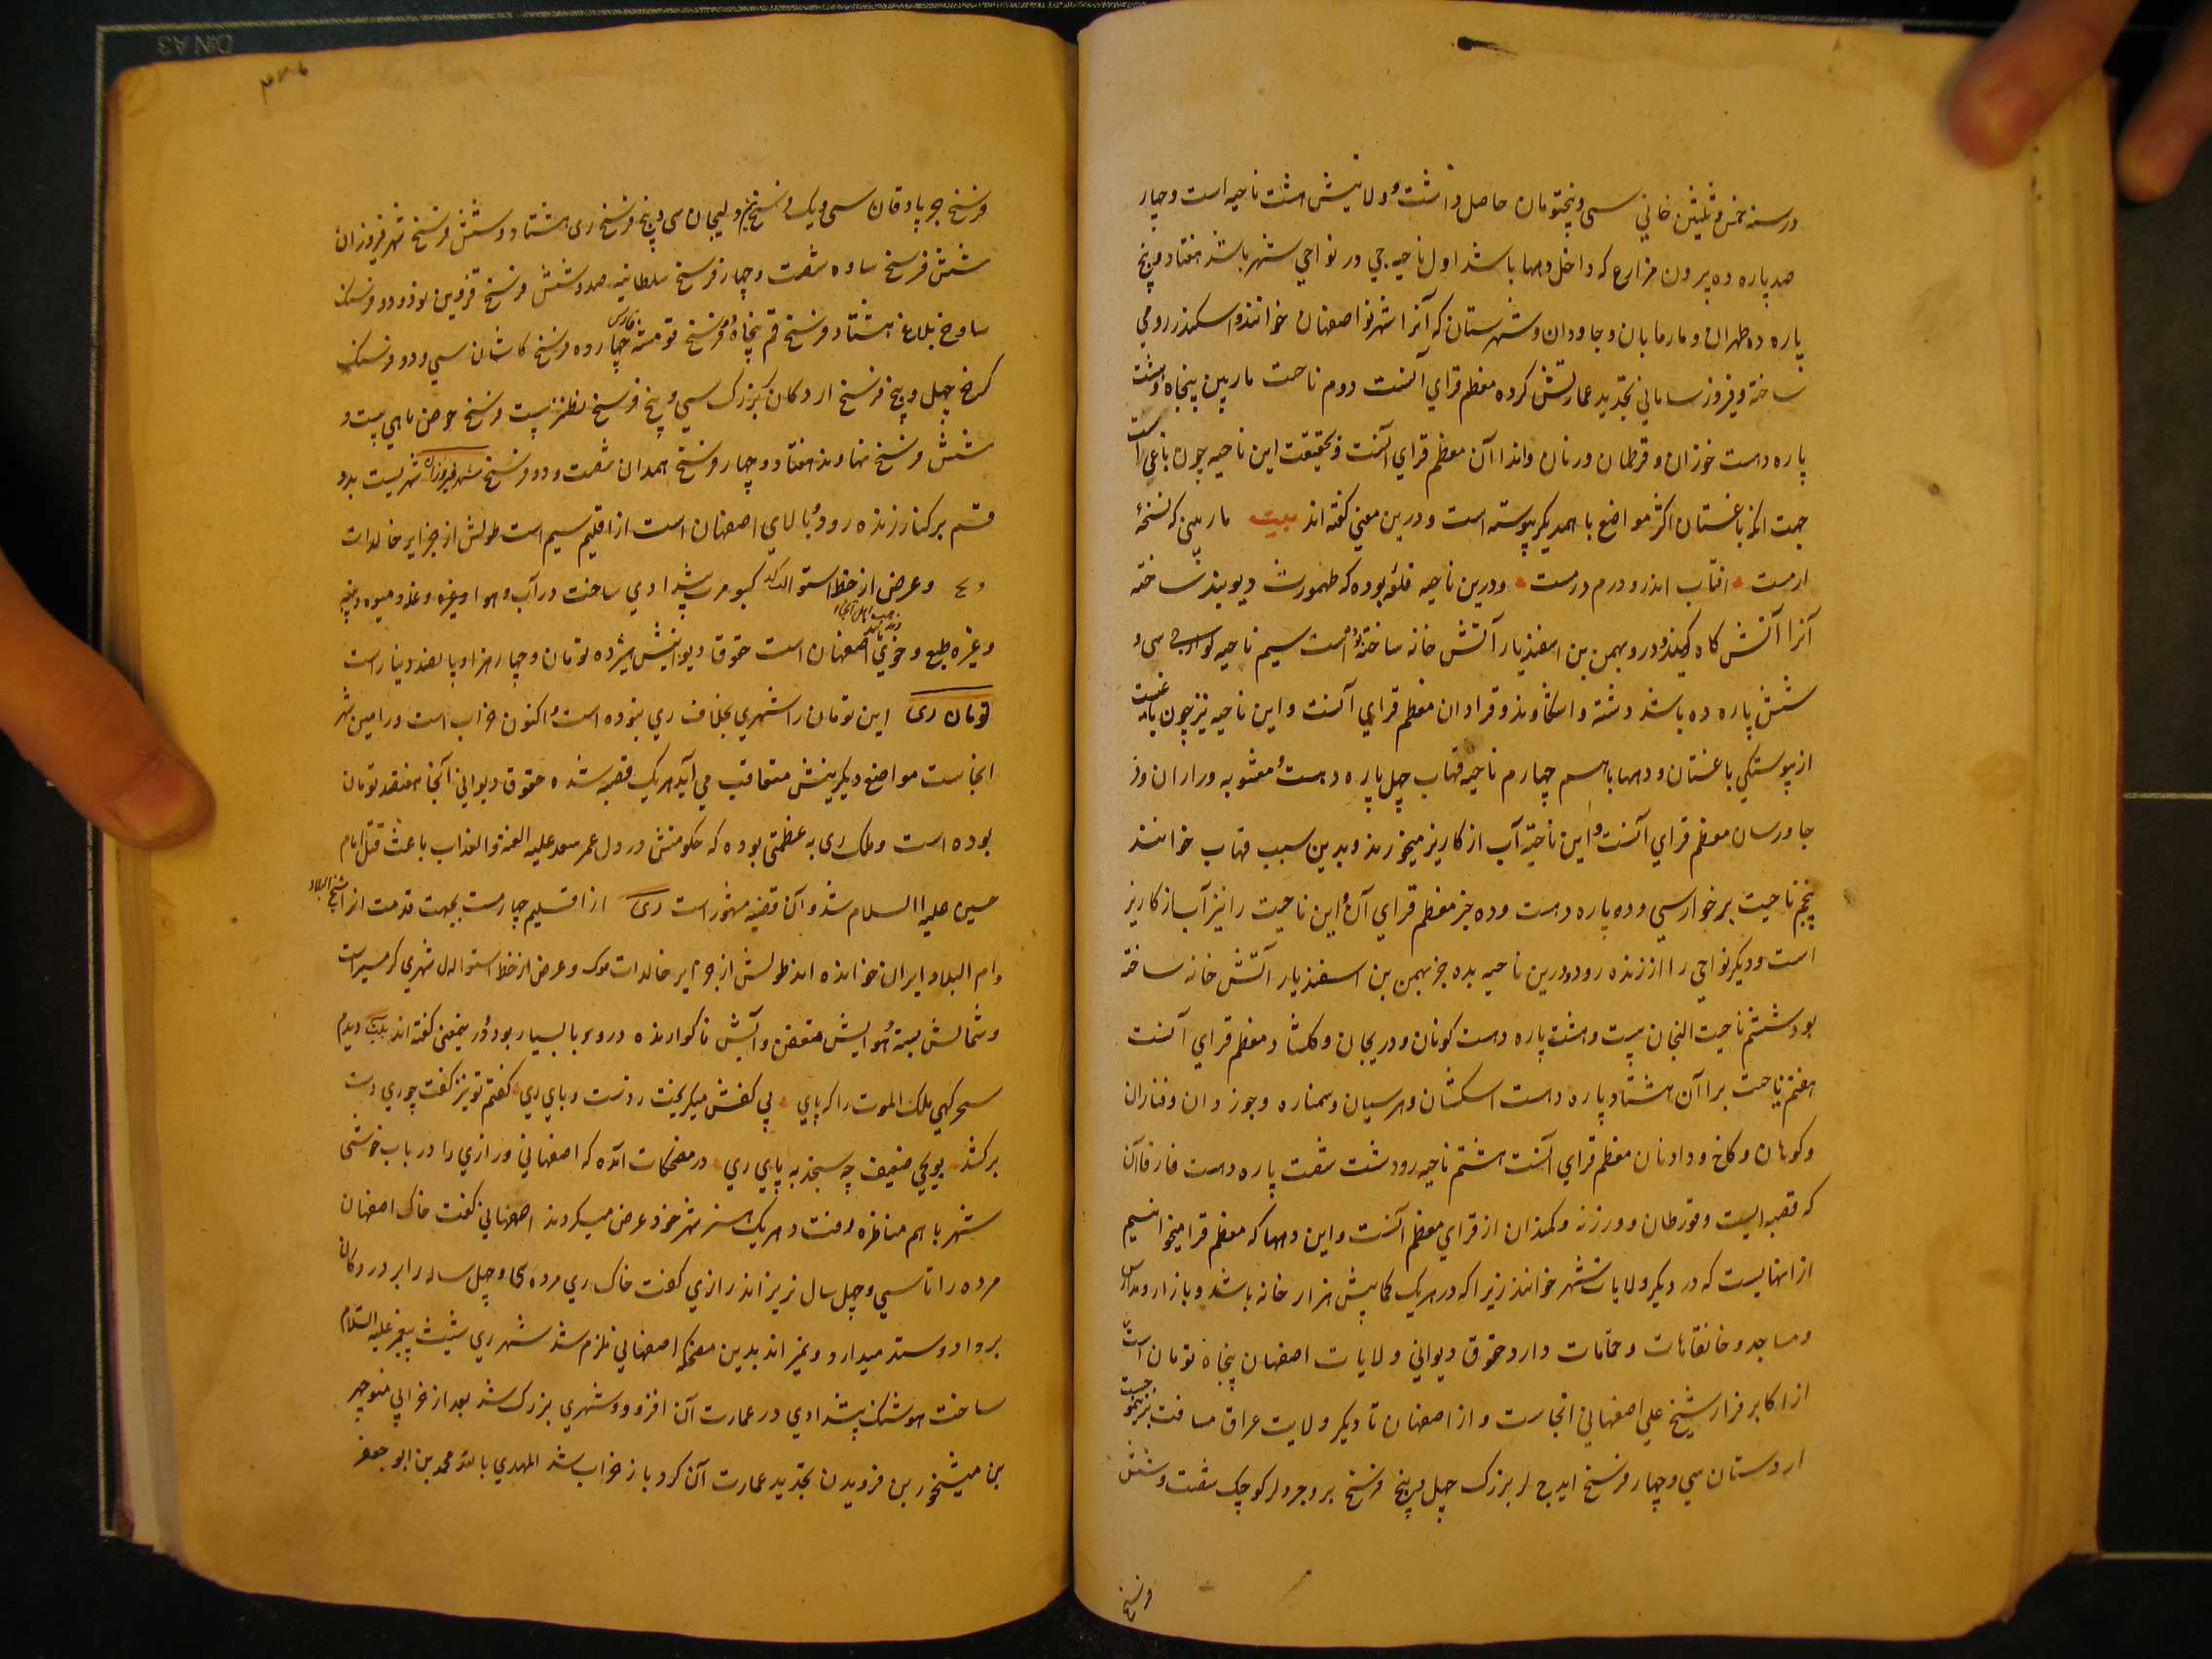 در سنه خمس و ثلثین خانی سی و پنج تومان حاصل داشت و ولایتش هشت ناحیه است و چهار
صد پاره ده بیرون مزارع که داخل دهها باشد اول ناحیه جی در نواحی شهر باشد هفتاد و پنج
پاره ده طهران و مارمابان و جاودان و شهرستان که آنرا شهر نو اصفهان خوانند و اسکندر رومی
ساخته و فیروز ساسانی تجدید عمارتش کرده معظم قرای آنست دوم ناحیت ماربین پنجاه و هشت
پاره دهست خوزان و قرطمان و رنان و اندا آن معظم قرای آنست و بحقیقت این ناحیه چون باغی است
جهت انکه باغستان اکثر مواضع با همدیگر پیوسته است و درین معنی گفته اند بیت ماربین که نسخهٔ
ارمست افتاب اندرو درم درمست و درین ناحیه قلعه بوده که طهمورث دیوبند ساخته
آنرا آتش کاه گویند و درو بهمن بن اسفندیار آتش خانه ساخته بوده است سیم ناحیه کوارج سی و
شش پاره ده باشد دشته و اشکاوند و قرادان معظم قرای آنست و این ناحیه نیز چون باغیست
از پیوستگی باغستان و دهها باهم چهارم ناحیه قهاب چهل پاره دهست و معشوبه و راران و
جاورسان معظم قرای آنست و این ناحیه آب از کاریز میخورند و بدین سبب قهاب خوانند
پنجم ناحیت برخوار سی و دو پاره دهست و ده جز معظم قرای آن و این ناحیت را نیز آب از کاریز
است و دیگر نواحی را از زنده رود و درین ناحیه بده جز بهمن بن اسفندیار آتش خانه ساخته
بود ششم ناحیت النجان بیست و هشت پاره دهست کونان و دریجان و کلشاد معظم قرای آنست
هفتم ناحیت براآن هشتاد پاره دهست اسکشان و هرسیان و سمناره و جوزدان و فنزان
و کوهان و کاخ و دادنان معظم قرای آنست هشتم ناحیه رودشت شصت پاره دهست فارفاآن
که قصبه ایست و قورطان و ورزنه و کمندان از قرای معظم آنست و این دهها که معظم قرا میخوانیم
از انهایست که در دیگر ولایات شهر خوانند زیرا که در هریک کمابیش هزار خانه باشد و بازار و مدارس
و مساجد و خانقاهات و حمامات دارد حقوق دیوانی ولایات اصفهان پنجاه تومان است
از اکابر مزار شیخ علی اصفهانی انجاست و از اصفهان تا دیگر ولایت عراق مسافت برینموجبست
اردستان سی و چهار فرسخ ایدج لر بزرگ چهل و پنج فرسخ بروجرد لر کوچک شصت و شش
فرسخ
فرسخ جرپادقان سی و یک فرسخ و لیجان سی و پنج فرسخ ری هشتاد و شش فرسخ شهر فیروزان
شش فرسخ ساوه شصت و چهار فرسخ سلطانیه صد و شش فرسخ قزوین نود و دو فرسنگ
ساوخ بلاغ هشتاد فرسخ قم پنجاه و دو فرسخ قومشه فارس چهارده فرسخ کاشان سی و دو فرسنگ
کرخ چهل و پنج فرسخ اردکان بزرگ سی و پنج فرسخ نطنز بیست فرسخ حوض ماهی بیست و
شش فرسخ نهاوند هفتاد و چهار فرسخ همدان شصت و دو فرسخ شهر فیروزان شهریست بدو
قسم بر کنار زنده رود و بالای اصفهان است از اقلیم سیم است طولش از جزایر خالدات
و عرض از خط استوا کیومرث پیشدادی ساخت در آب و هوا و غیره و غله و میوه و پنبه
و غیره طبع و خوی اصفهان است حقوق دیوانیش سیزده تومان و چهار هزار و پانصد دینار است
تومان ری این تومان را شهری بخلاف ری نبوده است و اکنون خراب است ورامین شهر
انجاست مواضع دیگر بیش متعاقب می آید هریک قصبه شده حقوق دیوانی آنجا هفتصد تومان
بوده است و ملک ری به عظمتی بوده که حکومتش در دل عمر سعد علیه العنة والعذاب باعث قتل امام
حسین علیه السلام شد و آن قضیه مشهور است ری از اقلیم چهارمست بجهت قدمت انرا شیخ البلاد
و ام البلاد ایران خوانده اند طولش از جزایر خالدات و عرض از خط استوا شهری گرمسیر است
و شمالش بسته و هوایش متعفن و آبش ناگوارنده درو وبا بسیار بود و درینمعنی گفته اند بیت دیدم
سحرگهی ملک الموت را که پای بی کفش میگریخت ز دست وبای ری گفتم تو نیز گفت چو ری دست
برکشد بویحیی ضعیف چه سنجد به پای ری در مضحکات آمده که اصفهانی و رازی را در باب خوشی
شهر با هم مناظره رفت و هریک هنر شهر خود عرض میکردند اصفهانی گفت خاک اصفهان
مرده را تا سی و چهل سال نریزاند رازی گفت خاک ری مرده سی و چهل ساله را بر در دکان
بر داد و ستد میدارد و نمیراند بدین مضحکه اصفهانی ملزم شد شهر ری شیث پیغمبر علیه السلام
ساخت هوشنگ پیشدادی در عمارت آن افزود و شهری بزرگ شد بعد از خرابی منوچهر
بن میشخور بن فریدون تجدید عمارت آن کرد باز خراب شد المهدی بالله محمد بن ابو جعفر